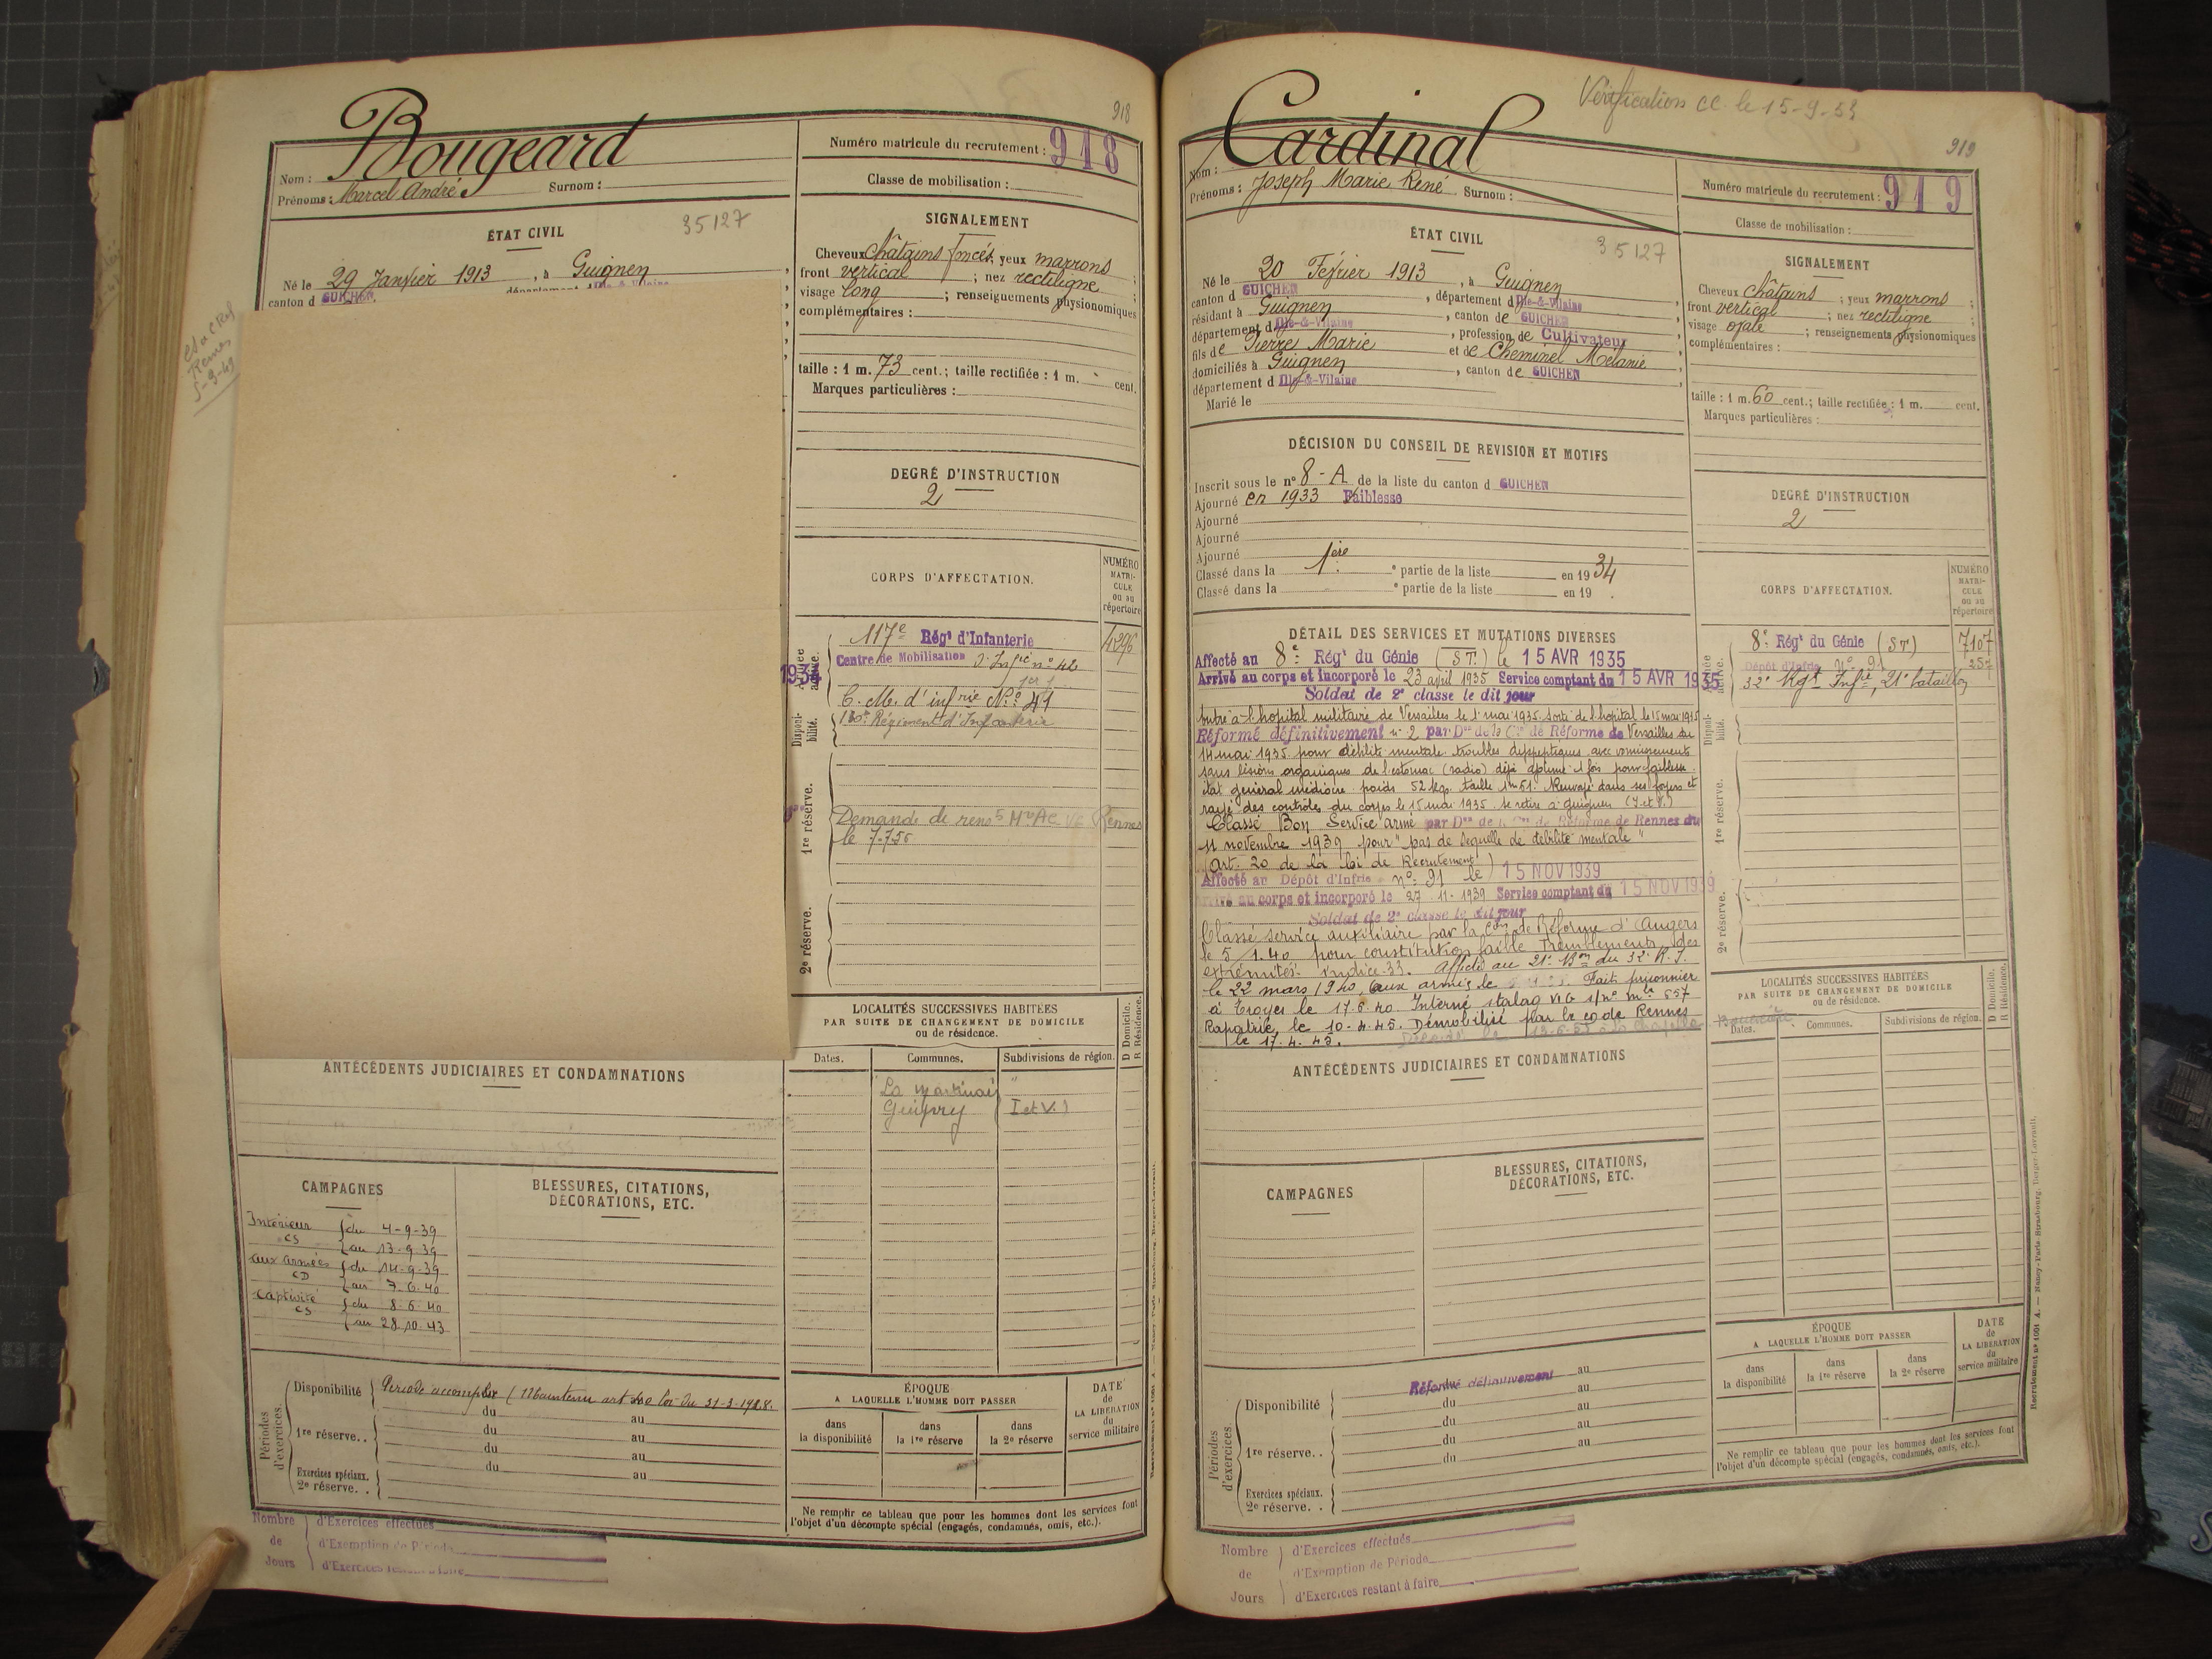 918
Bougeard
Nom :
Prénoms : Marcel André Surnom :
Numéro matricule du recrutement : 918
Classe de mobilisation :
ÉTAT CIVIL
35127
Né le 29 Janvier 1913, à Guignen
canton d GUICHEN
SIGNALEMENT
Cheveux châtains foncés yeux marrons ;
front vertical ; nez rectiligne ;
visage long ; renseignements physionomiques
complémentaires :
taille : 1 m. 73 cent.; taille rectifiée : 1 m. cent.
Marques particulières :
DEGRÉ D'INSTRUCTION
2
CORPS D'AFFECTATION.
NUMÉRO MATRI-CULE ou au répertoire
117e Régt d'Infanterie
4296
Centre de Mobilisation d'Infie n° 42
1934
C. M. d'infrie N° 41
Régiment d'Infanterie
Disponi-bilité.
1re réserve.
Demande de rens
Rennes
le 7-7-55
2e réserve.
Rennes
5-9-49
LOCALITÉS SUCCESSIVES HABITÉES
PAR SUITE DE CHANGEMENT DE DOMICILE
ou de résidence.
D Domicile.
R Résidence.
Dates. Communes. Subdivisions de région.
Guipry I et V.
ANTÉCÉDENTS JUDICIAIRES ET CONDAMNATIONS
CAMPAGNES
BLESSURES, CITATIONS,
DÉCORATIONS, ETC.
Intérieur du 4-9-39
CS au 13-9-39
aux armées du 14-9-39
CD au 7-6-40
Captivité du 8-6-40
CS au 28.10.43
Périodes d'exercices.
Disponibilité Période accomplie (Maintenu art 40 loi du 31-3-1928.
du au
1re réserve. . du au
du au
Exercices spéciaux. du au
2e réserve. .
ÉPOQUE
A LAQUELLE L'HOMME DOIT PASSER
dans la disponibilité
dans la 1re réserve
dans la 2e réserve
DATE de LA LIBÉRATION du service militaire
Ne remplir ce tableau que pour les hommes dont les services font
l'objet d'un décompte spécial (engagés, condamnés, omis, etc.).
Nombre de Jours
d'Exercices effectués
d'Exemption de Période
Vérification CC. le 15-9-53
919
Cardinal
Nom :
Prénoms : Joseph Marie René Surnom :
Numéro matricule du recrutement : 919
Classe de mobilisation :
ÉTAT CIVIL
35127
Né le 20 Février 1913, à Guignen
canton d GUICHEN, département d Ille-&-Vilaine
résidant à Guignen, canton de GUICHEN
département d Ille-&-Vilaine, profession de Cultivateur
fils de Pierre Marie et de Cheminel Mélanie
domiciliés à Guignen, canton de GUICHEN
département d Ille-&-Vilaine
Marié le
SIGNALEMENT
Cheveux châtains ; yeux marrons ;
front vertical ; nez rectiligne ;
visage ovale ; renseignements physionomiques
complémentaires :
taille : 1 m. 60 cent.; taille rectifiée : 1 m. cent.
Marques particulières :
DÉCISION DU CONSEIL DE REVISION ET MOTIFS
Inscrit sous le n° 8-A de la liste du canton d GUICHEN
Ajourné en 1933 Faiblesse
Ajourné
Ajourné
Ajourné
Classé dans la 1ère e partie de la liste en 1934
Classé dans la e partie de la liste en 19 .
DEGRÉ D'INSTRUCTION
2
DÉTAIL DES SERVICES ET MUTATIONS DIVERSES
Affecté au 8e Régt du Génie (ST.) le 15 AVR 1935
Arrivé au corps et incorporé le 23 avril 1935 Service comptant du 15 AVR 1935
Soldat de 2e classe le dit jour
Entré à l'hopital militaire de Versailles le 1 mai 1935. Sorti de l'hopital le 15 mai 1935
Réformé définitivement n° 2 par Don de la Con de Réforme de Versailles du
14 mai 1935 pour débilité mentale troubles dyspeptiques avec vomissements
sans lésions organiques de l'estomac (radio) déjà ajourné 1 fois pour faiblesse.
état général médiocre poids 52 kgs. taille 1m61. Renvoyé dans ses foyers et
rayé des contrôles du corps le 15 mai 1935. se retire à Guignen (I et V.)
Classé Bon Service armé par Don de la Con de Réforme de Rennes du
11 novembre 1939 pour "pas de sequelle de débilité mentale"
(Art. 20 de la loi de Recrutement)
Affecté au Dépôt d'Infrie n° 91 le 15 NOV 1939
Arrivé au corps et incorporé le 27-11-1939 Service comptant du 15 NOV 1939
Soldat de 2e classe le dit jour
Classé service auxiliaire par la Con de Réforme d'Angers
le 5/1.40 pour constitution faible Tremblements des
extrémités. indice 33. Affecté au 21e Bon du 32e R.I.
le 22 mars 1940, aux armées le Fait prisonnier
à Troyes le 17.6.40. Interné stalag VI G s/n° mle 557
Rapatrié le 10-4-45. Démobilisé par le code Rennes
le 17.4.45.
CORPS D'AFFECTATION.
NUMÉRO MATRI-CULE ou au répertoire
8e Régt du Génie (ST) 7107
Dépôt d'Infrie n° 91 257
32e Rgt Infie, 21e bataillon
Disponi-bilité.
1re réserve.
2e réserve.
LOCALITÉS SUCCESSIVES HABITÉES
PAR SUITE DE CHANGEMENT DE DOMICILE
ou de résidence.
D Domicile.
R Résidence.
Dates. Communes. Subdivisions de région.
ANTÉCÉDENTS JUDICIAIRES ET CONDAMNATIONS
CAMPAGNES
BLESSURES, CITATIONS,
DÉCORATIONS, ETC.
Périodes d'exercices.
Réformé définitivement au
Disponibilité du au
du au
1re réserve. . du au
du au
Exercices spéciaux.
2e réserve. .
ÉPOQUE
A LAQUELLE L'HOMME DOIT PASSER
dans la disponibilité
dans la 1re réserve
dans la 2e réserve
DATE de LA LIBÉRATION du service militaire
Ne remplir ce tableau que pour les hommes dont les services font
l'objet d'un décompte spécial (engagés, condamnés, omis, etc.).
Nombre de Jours
d'Exercices effectués
d'Exemption de Période
d'Exercices restant à faire
Recrutement n° 1001 A. — Nancy-Paris-Strasbourg, Berger-Levrault.